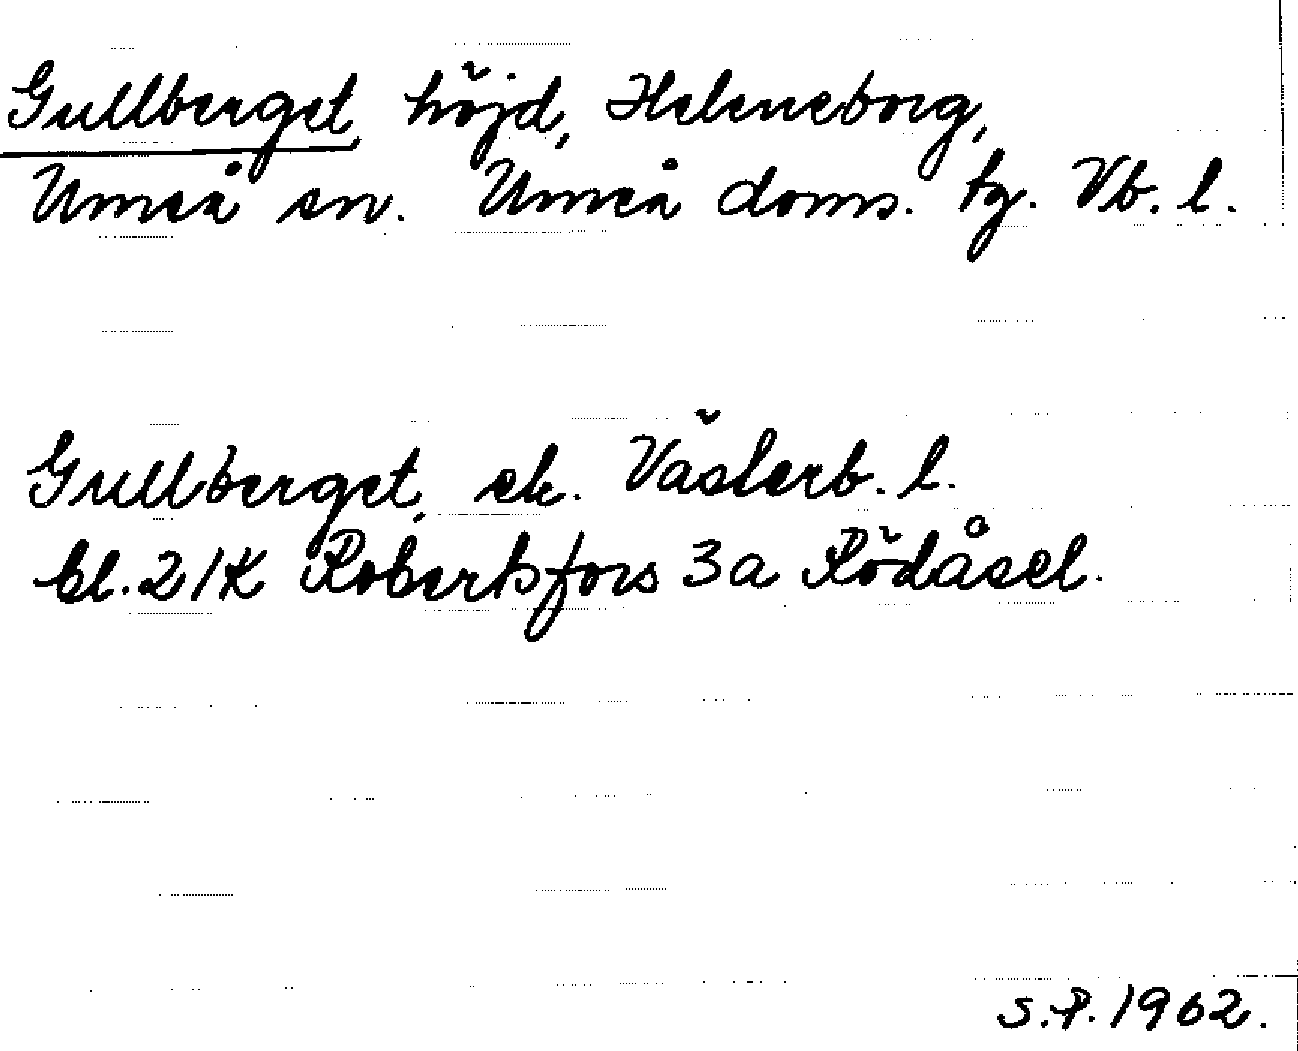 Gullberget, höjd, Heleneborg,
Umeå sn. Umeå doms. tg. Vb. l.
Gullberget, ek. Västerb. l.
bl. 21K Robertsfors 3a Rödåsel.
S.P. 1962.